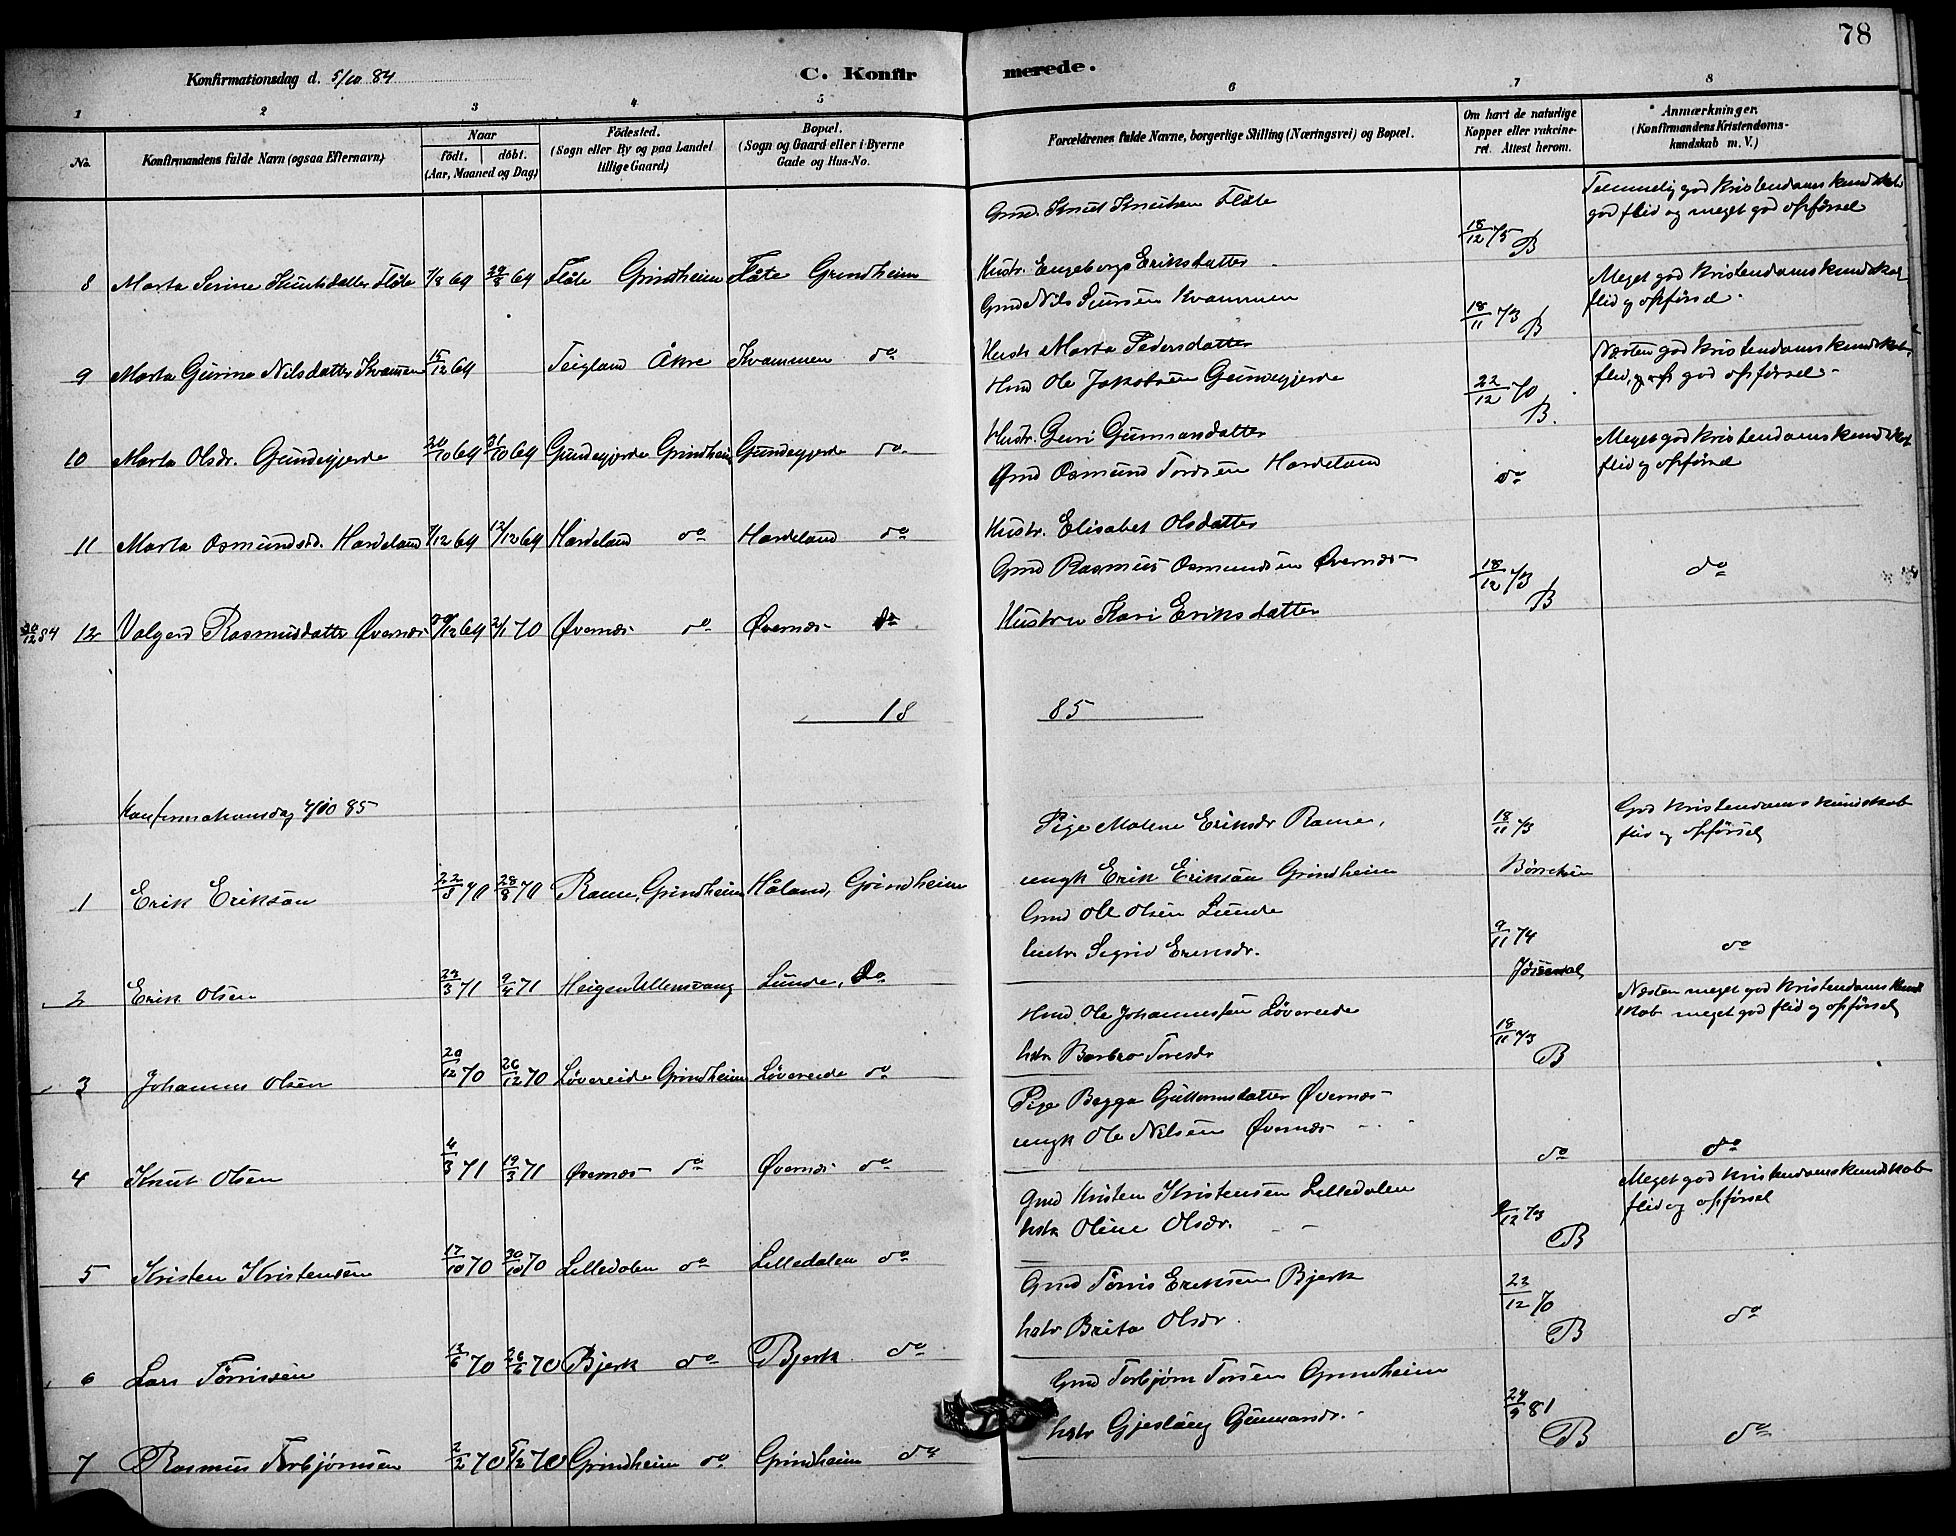 78
Konfirmationsdag d. 5/10 84
C. Konfir
merede.
1 2 3 4 5 6 7 8
No.
Konfirmandens fulde Navn (ogsaa Efternavn)
Naar
født. døbt.
(Aar, Maaned og Dag)
Fødested.
(Sogn eller By og paa Landet
tillige Gaard)
Bopæl.
(Sogn og Gaard eller i Byerne
Gade og Hus-No.
Forældrenes fulde Navne, borgerlige Stilling (Næringsvei) og Bopæl.
Om havt de naturlige
Kopper eller vakcine-
ret. Attest herom.
Anmærkninger.
(Konfirmandens Kristendoms-
kundskab m. V.)
Gmd Knut Knutsen Flåte
18/12 75 B
Temmelig god Kristendomskundskab
god flid og meget god opførsel
8 Marta Serine Knutsdatter Flåte 69 69 Flåte Grindheim Flåte Grindheim
Hustr. Engeborg Eriksdatter
Gmd Nils Kvammen
18/11 73 B
Meget god Kristendomskundskab
flid og opførsel.
9 Marta Gurine Nilsdatter Kvammen 15/12 69 Teigland Åkre Kvammen do
Hustr Marta Pedersdatter
Hmd Ole Jakobsen Gundegjerde
22/12 70 B.
Næsten god Kristendomskundskab,
flid, god opførsel
10 Marta Olsdr. Gundegjerde 20/10 69 31/10 69 Gundegjerde Grindheim Gundegjerde do
Hustr. Guri Gunnarsdatter
Gmd Osmund Tordsen Hardeland
do
Meget god Kristendomskundskab
flid og opførsel
11 Marta Osmundsd. Hardeland 7/12 69 12/12 69 Hardeland do Hardeland do
Hustr. Elisabet Olsdatter
Gmd Rasmus Osmundsen Øvernæs
18/12 73 B
do
12 Valgerd Rasmusdatter Øvernæs 69 2/1 70 Øvernæs do Øvernæs do
Hustru Kari Eriksdatter
18 85
Konfirmationsdag 4/10 85
Pige Malene Eriksdr Rame,
18/11 73
God Kristendomskundskab
flid og opførsel
1 Erik Eriksøn 22/8 70 28/8 70 Rame, Grindheim Håland, Grindheim
ungk Erik Eriksøn Grindheim
Gmd Ole Olsen Lunde
9/11 74
do
2 Erik Olsen 23/3 71 9/4 71 Heigen Ullensvang Lunde, do
hustr Sigrid
Hmd. Ole Johannesen Løvereide
18/11 73 B
Næsten meget god Kristendomskund
skab meget god flid og opførsel
3 Johannes Olsen 20/12 70 26/12 70 Løvereide Grindheim Løvereide do
hstr Barbro Toresdr
Pige Begga Guttormsdatter Øvernæs
do
do
4 Knut Olsen 4/3 71 19/3 71 Øvernæs do Øvernæs do
ungk Ole Nilsen Øvernæs
Gmd Kristen Kristensen Lilledalen
12 73 B
Meget god Kristendomskundskab
flid og opførsel
5 Kristen Kristensen 17/10 70 30/10 70 Lilledalen do Lilledalen do
hstr Oline Olsdr.
Gmd Tørris Eriksen Bjerk
22/12 70 B
do
6 Lars Tørrissen 13/6 70 26/6 70 Bjerk do Bjerk do
hstr Brita Olsdr.
Gmd Torbjørn Torsen Grindheim
24/9 81 B
do
7 Rasmus Torbjørnsen 2/2 70 5/2 70 Grindheim do Grindheim do
hstr Gjeslaug Gunnarsdr.